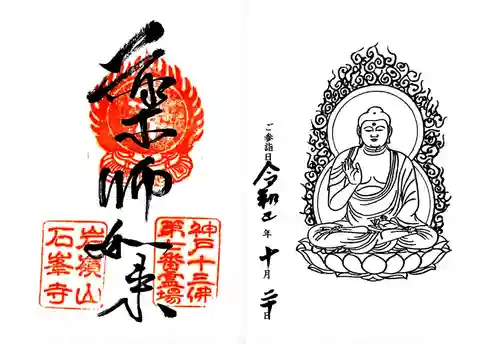 ご参詣日
令和 年 十月 二十日
薬師如来
神戸十三佛
第一番霊場
岩嶺山
石峯寺